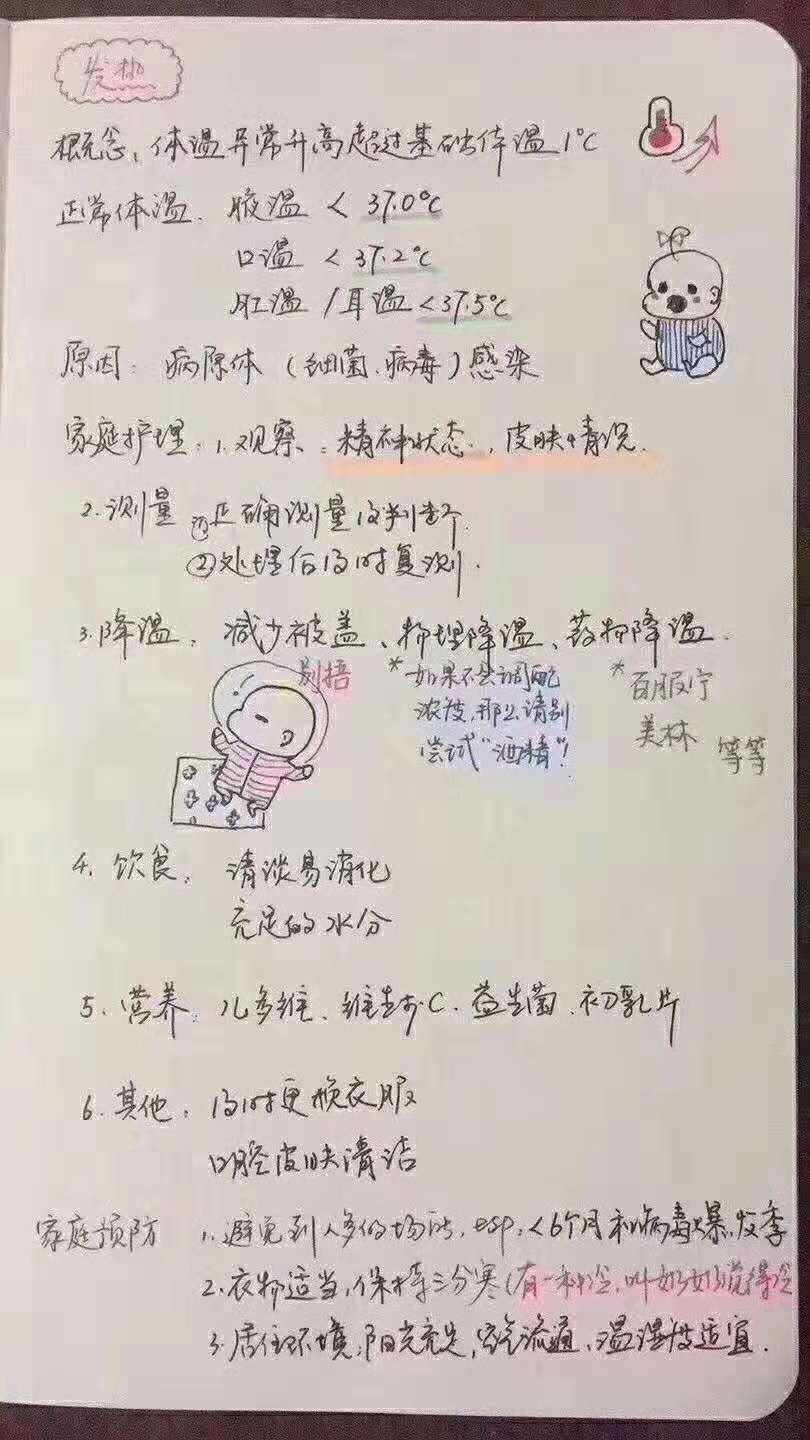 发热
概念：体温异常升高超过基础体温1℃
正常体温：腋温 < 37.0℃
口温 < 37.2℃
肛温 / 耳温 < 37.5℃
原因：病原体（细菌、病毒）感染
家庭护理：1.观察：精神状态、皮肤情况.
2.测量 ①正确测量及判断.
②处理后及时复测.
3.降温：减少被盖、物理降温、药物降温.
别捂
*如果不会调配浓度，那么请别尝试“酒精”！
*百服宁
美林 等等
4.饮食：清淡易消化
充足的水分
5.营养：儿多维、维生素C、益生菌、初乳片
6.其他：及时更换衣服
口腔皮肤清洁
家庭预防 1.避免到人多的场所，esp：<6个月和病毒爆发季
2.衣物适当，保持三分寒（有一种冷，叫奶奶觉得冷
3.居住环境，阳光充足，空气流通、温湿度适宜.